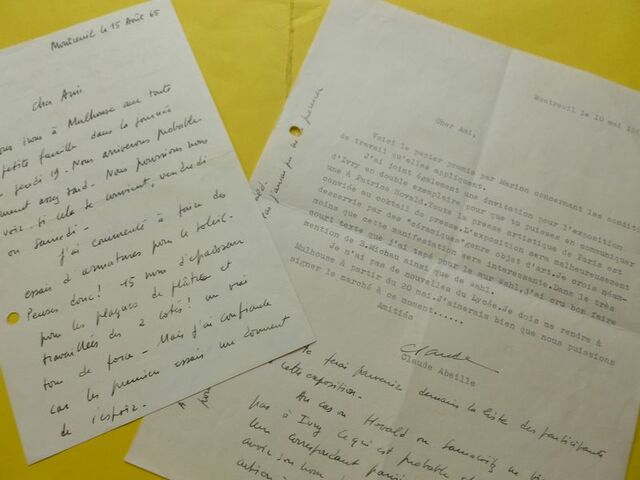 Montreuil le 15 Août 65
Cher Ami
irons à Mulhouse avec toute
petite famille dans la journée
jeudi 19 - Nous arriverons probable
ment assez tard - Nous pourrions nous
voir - si cela te convient, vendredi
ou samedi -
J'ai commencé à faire des
essais d'armatures pour le soleil -
Pensez donc ! 15 mm d'épaisseur
pour les plaques de plâtre et
travaillées des 2 côtés ! un vrai
tour de force - Mais j'ai confiance
car les premiers essais me donnent
de l'espoir.
Montreuil le 10 mai
Cher Ami,
Voici le papier promis par Marion concernant les condit
de travail qu'elles appliquent.
J'ai joint également une invitation pour l'exposition
d'Ivry en double exemplaire pour que tu puisses en communiquer
une à Patrice Hovald. Toute la presse artistique de Paris est
conviée au cocktail de presse. L'exposition sera malheureusement
desservie par des "céramiques" genre objet d'art. Je crois néan-
moins que cette manifestation sera interessante. Dans le très
court texte que j'ai tapé pour le mur Wahl, j'ai cru bon faire
mention de S. Michau ainsi que de Wahl.
Je n'ai pas de nouvelles du Lycée. Je dois me rendre à
Mulhouse à partir du 20 mai. J'aimerais bien que nous puissions
signer le marché à ce moment......
Amitiés
Claude
Claude Abeille
Je ferai parvenir demain la liste des participants
cette exposition.
Au cas où Hovald ou
pas à Ivry ce qui est probable
correspondant
avoir son nom
action -